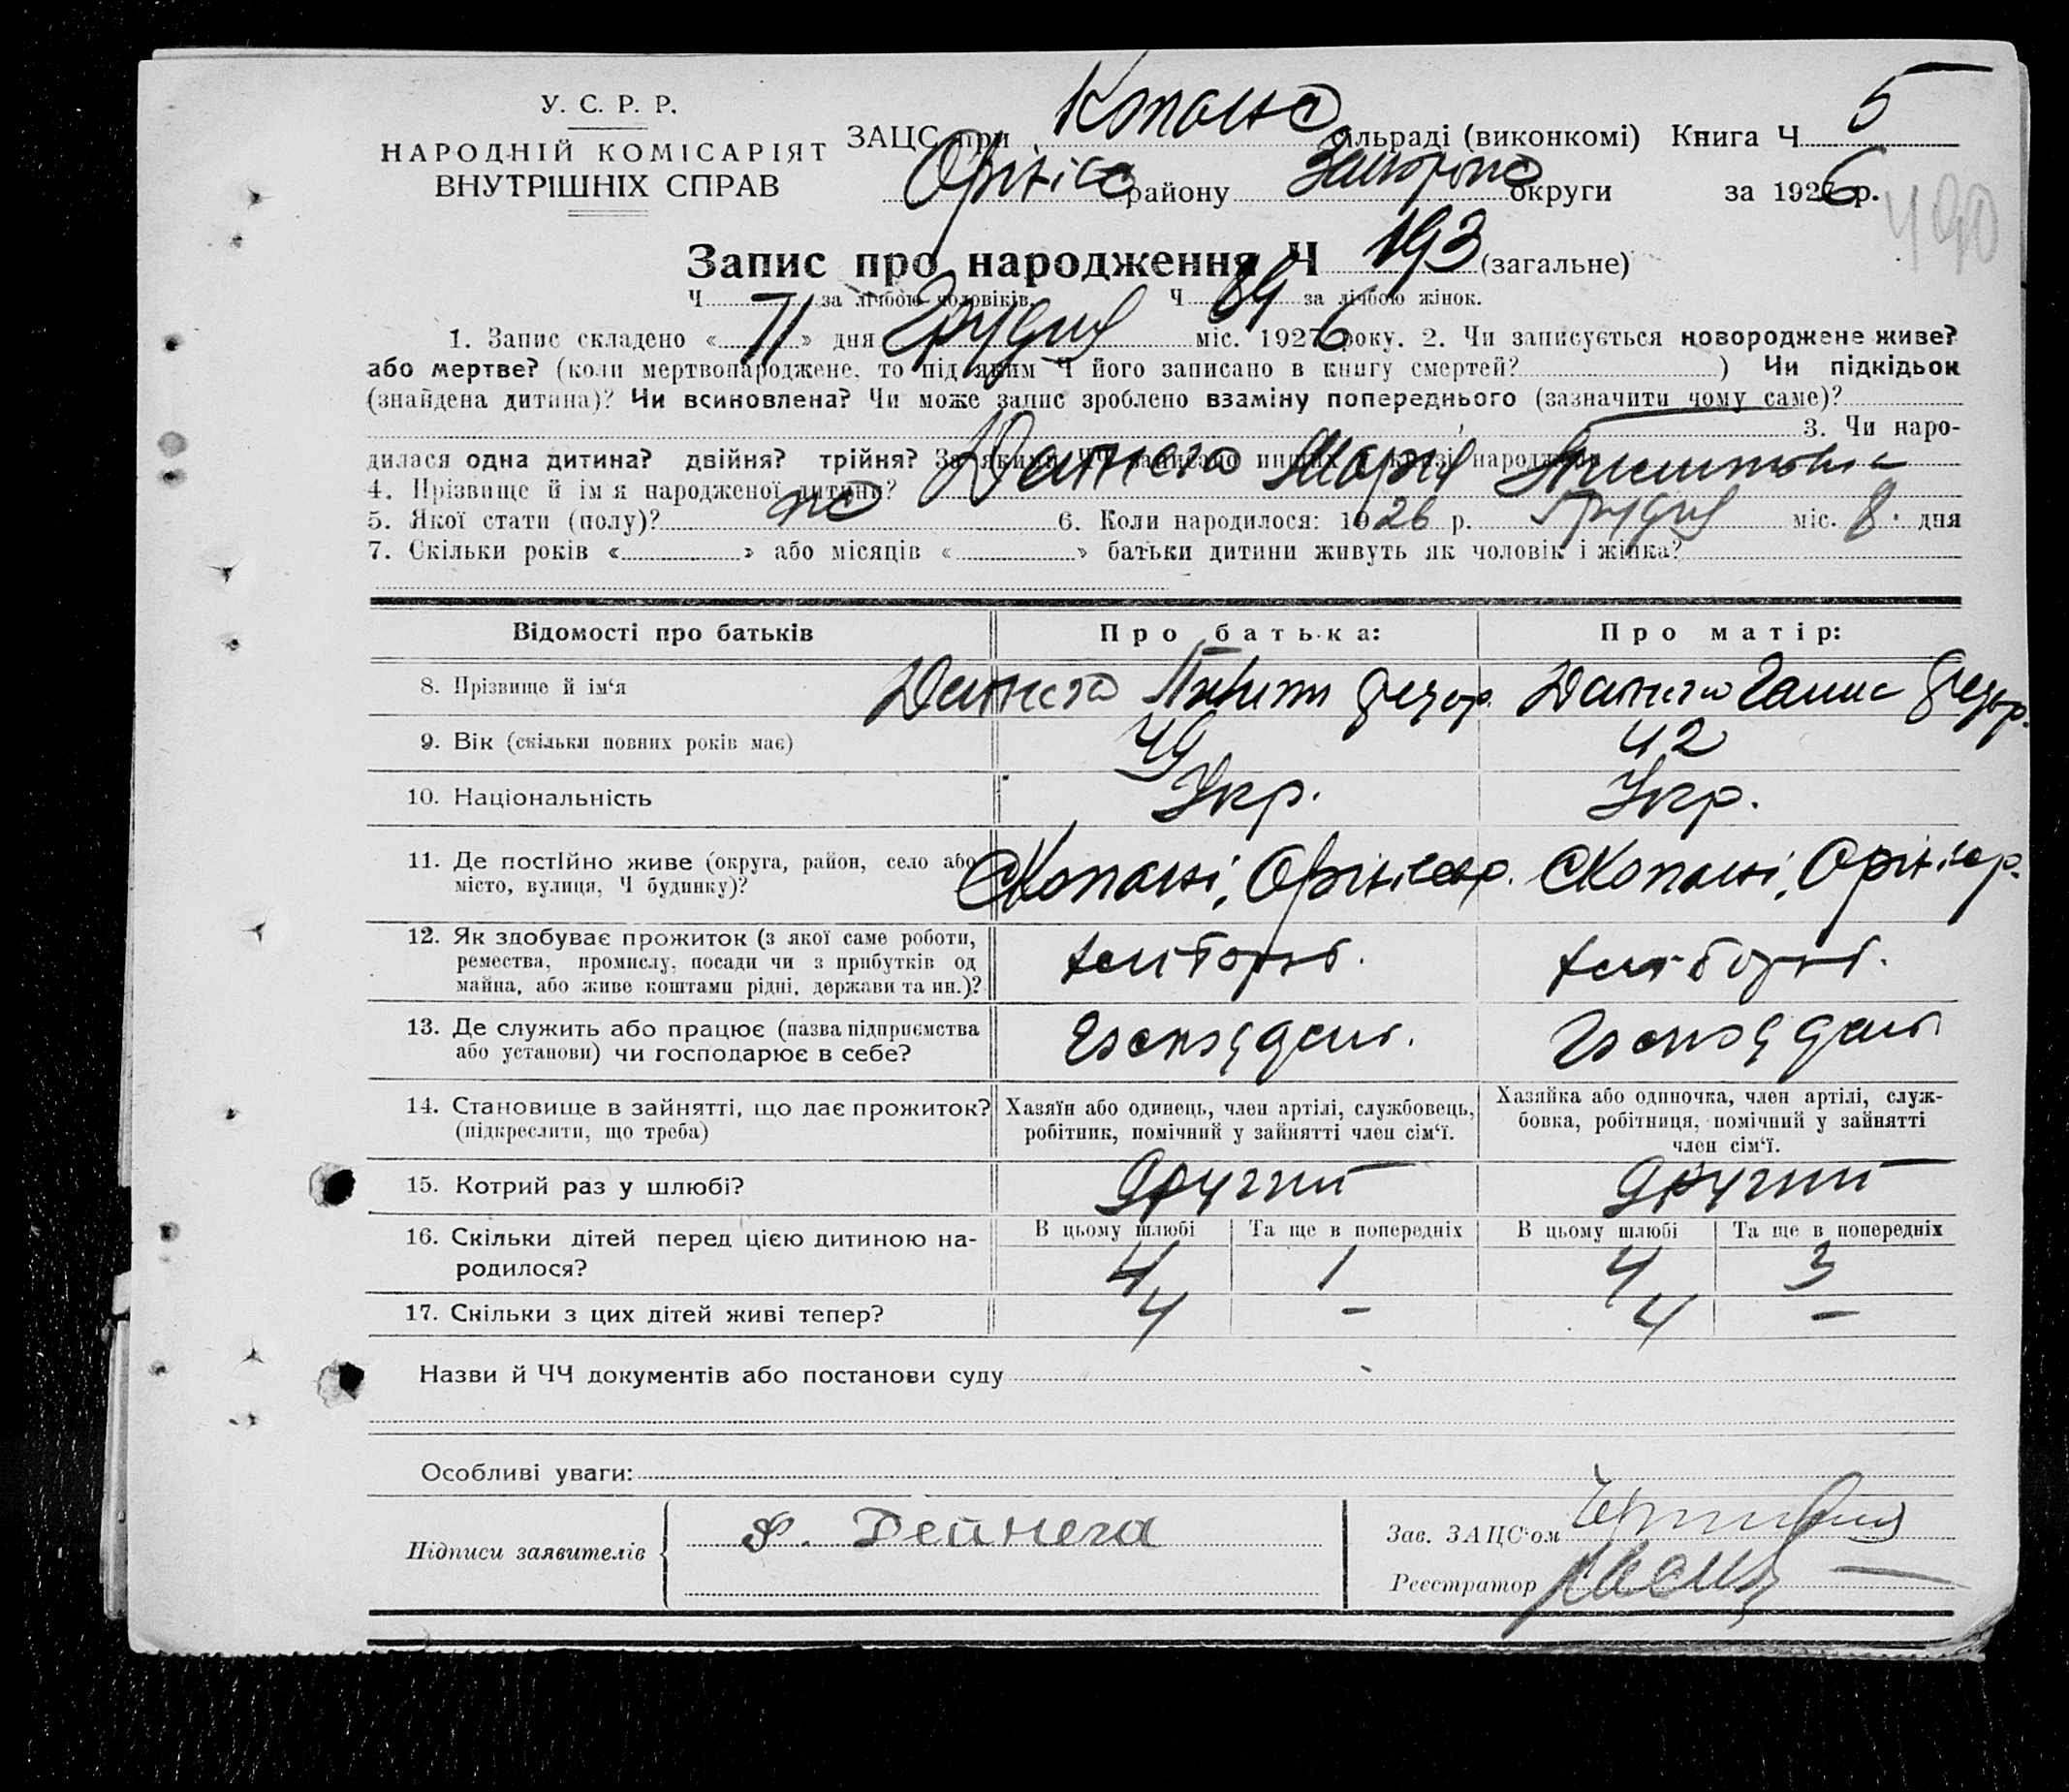 У. С. Р. Р.
НАРОДНІЙ КОМІСАРІЯТ
ВНУТРІШНІХ СПРАВ
ЗАЦС при Копансо ільраді (виконкомі) Книга Ч 5
Оріхіс району Запороз округи за 1926 р.
490
Запис про народження Ч 193 (загальне)
Ч за лічбою чоловіків. Ч 89 за лічбою жінок.
1. Запис складено « 11 » дня Грудня міс. 1926 року. 2. Чи записується новороджене живе?
або мертве? (коли мертвонароджене, то під яким Ч його записано в книгу смертей? ) Чи підкідьок
(знайдена дитина)? Чи всиновлена? Чи може запис зроблено взаміну попереднього (зазначити чому саме)?
3. Чи наро-
дилася одна дитина? двійня? трійня? За якими ЧЧ записано инших в книзі народжень
4. Прізвище й ім я народженої дитини? Дайнега Марія
5. Якої стати (полу)? жо 6. Коли народилося: 1926 р. Грудня міс. 8 дня
7. Скільки років « » або місяців « » батьки дитини живуть як чоловік і жінка?
Відомості про батьків Про батька: Про матір:
8. Прізвище й ім‘я Дайнега Микита Федор. Дайнега Ганна Федор.
9. Вік (скільки повних років має) 49 42
10. Національність Укр. Укр.
11. Де постійно живе (округа, район, село або
місто, вулиця, Ч будинку)? с Копані, Оріхісо р. с Копані, Оріхіс р.
12. Як здобуває прожиток (з якої саме роботи,
ремества, промислу, посади чи з прибутків од
майна, або живе коштами рідні, держави та ин.)? хлібороб. хлібороб.
13. Де служить або працює (назва підприємства
або установи) чи господарює в себе?
14. Становище в зайнятті, що дає прожиток?
(підкреслити, що треба)
Хазяїн або одинець, член артілі, службовець,
робітник, помічний у зайнятті член сім‘ї.
Хазяйка або одиночка, член артілі, служ-
бовка, робітниця, помічний у зайнятті
член сім‘ї.
15. Котрий раз у шлюбі? другий другий
16. Скільки дітей перед цією дитиною на-
родилося?
В цьому шлюбі Та ще в попередніх В цьому шлюбі Та ще в попередніх
4 1 4 3
17. Скільки з цих дітей живі тепер? 4 - 4 -
Назви й ЧЧ документів або постанови суду
Особливі уваги:
Підписи заявителів Ф. Дейнега
Зав. ЗАЦС‘ом
Реєстратор